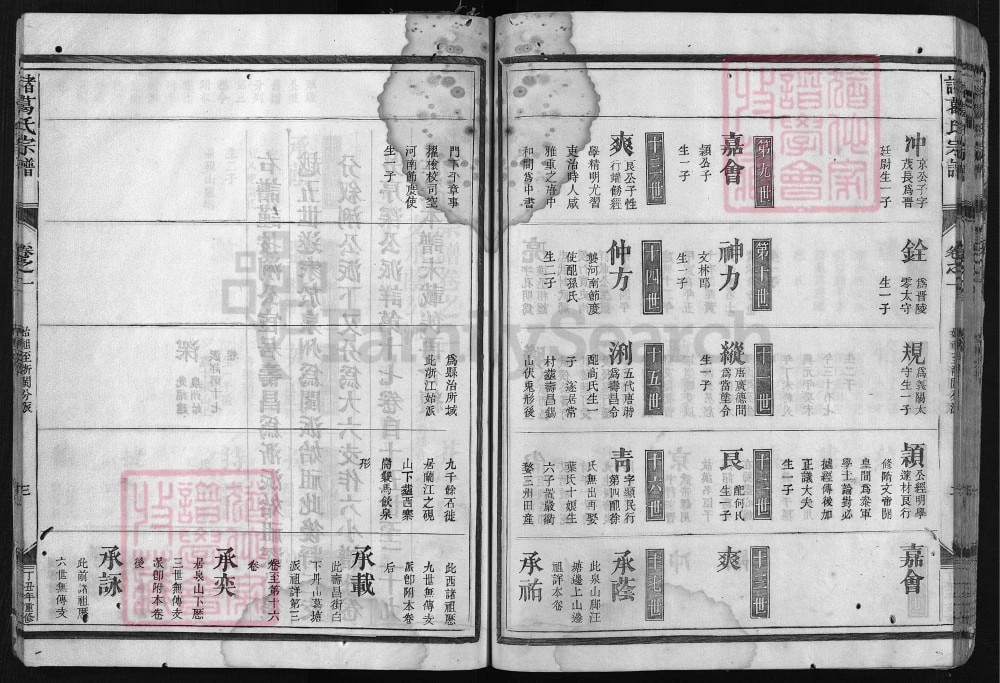 諸葛氏宗譜
卷之一
沖
京公子字
茂長爲晉
廷尉生一子
銓
爲晉陵
零太守
生一子
規
爲義陽太
守生一子
穎
公經明學
達材良行
修隋文帝開
皇間爲秦軍
學士論對必
據經傳後加
正議大夫
生一子
嘉會
第九世
嘉會
穎公子
生一子
第十世
神力
文林郎
生一子
十一世
縱
唐廣德間
爲常當塗令
生一子
十二世
良
配何氏
生一子
十三世
爽
十三世
爽
良公子性
行端飭經
學精明尤習
吏治時人咸
雅重之唐中
和間爲中書
門下平章事
擢檢校司空
河南節度使
生一子
十四世
仲方
襲河南節度
使配孫氏
生二子
十五世
浰
五代唐時
爲壽昌令
配高氏生一
子遂居常
村葬壽昌鷄
山伏兎形後
爲縣治所城
此浙江始派
十六世
青
字顯民行
一第四配徐
氏無出再娶
葉氏十娘生
六子置嚴衢
婺三州田產
九千餘石徙
居蘭江之硯
山下葬西樂
鄉雙馬飲泉
形
十七世
承蔭
此泉山鄔汪
塘邊上山邊
祖詳本卷
承祐
此西諸祖歷
九世無傳支
派卽附本卷
后
承載
此壽昌街白
下丹山墓塘
派祖詳第二
卷至第十六
卷
承奕
居泉山下歷
三世無傳支
派卽附本卷
後
承詠
此前諸祖歷
六世無傳支
諸葛氏宗譜
卷之一
始祖至浙閩分派
三
丁丑年重修
FamilySearch